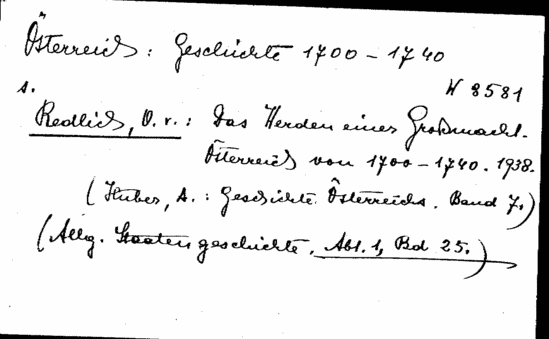 Österreich: Geschichte 1700-1740
W 8581
s.
Redlich, O. v.: Das Werden einer Großmacht.
Österreich von 1700-1740. 1938.
(Huber, A.: Geschichte Österreichs. Band 7.)
(Allg. Staatengeschichte. Abt. 1, Bd 25.)